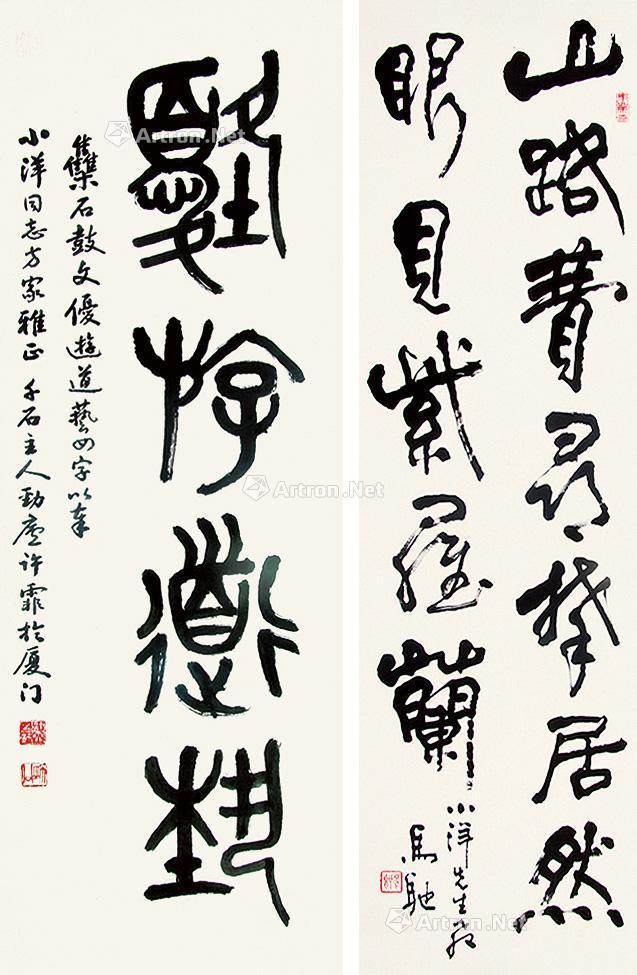 山路費尋攀居然
眼見紫羅蘭
小洋先生
馬馳
優游道藝
雧石鼓文優遊道藝四字以奉
小洋同志方家雅正 千石主人勁廬许霏於厦门
Artron.Net
Artron.Net
Artron.Net
Artron.Net
Artron.Net
Artron.Net